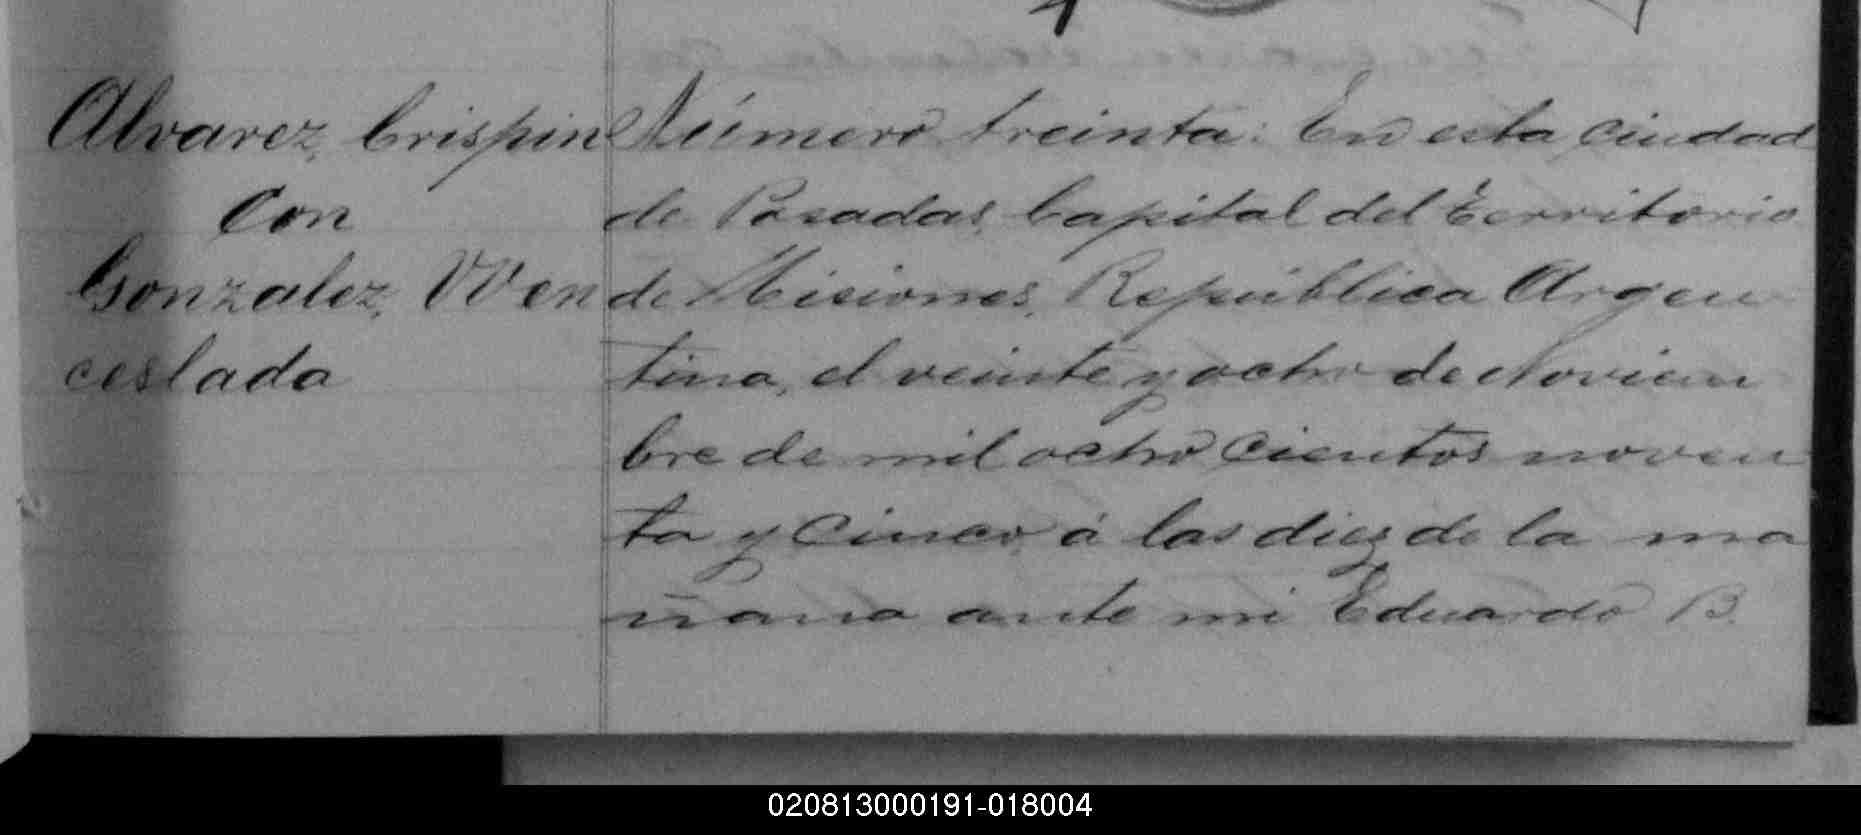 Alvarez, Crispin
con
Gonzalez, Wen
ceslada
Número treinta: En esta ciudad
de Posadas, Capital del Território
de Misiones, República Argen
tina, el veinte y ocho de Noviem
bre de mil ocho cientos noven
ta y cinco, á las diez de la ma
ñana ante mi Eduardo B.
020813000191-018004